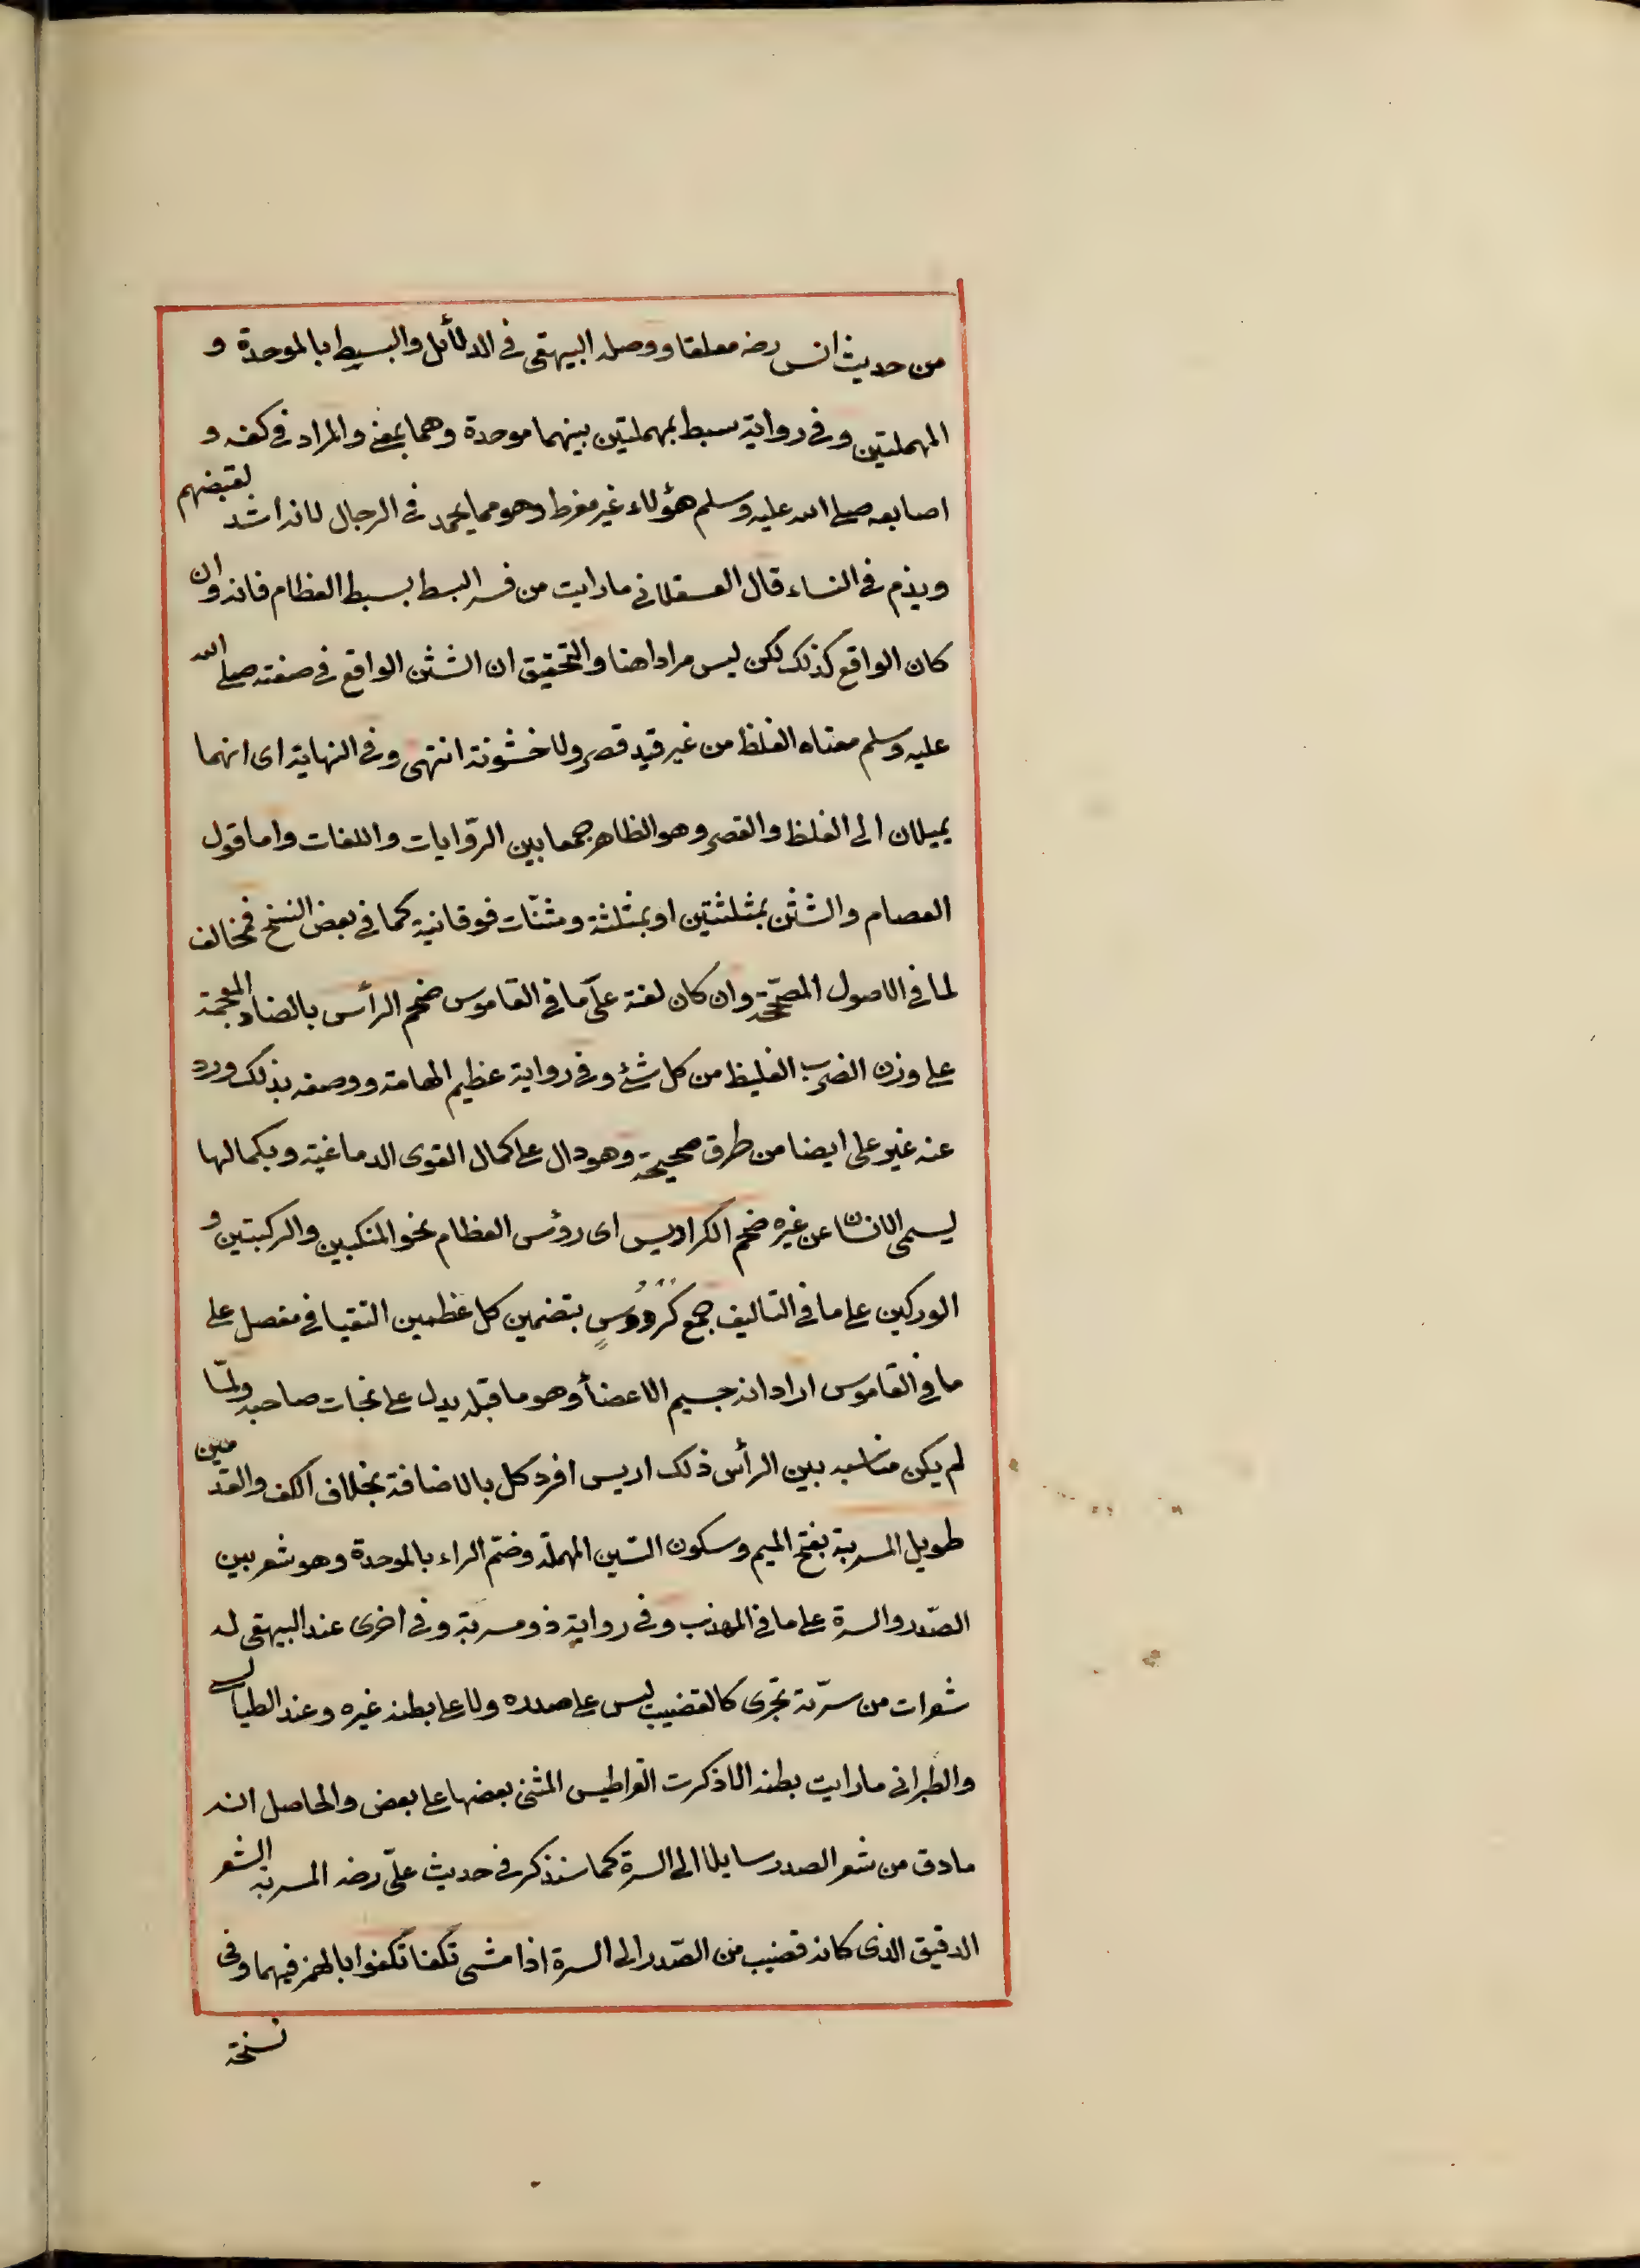 من حديث انس رضه معلقا ووصله البيهقى فى الدلائل والبسيط بالموحدة و
المهملتين وفى رواية سبط بمهملتين بينهما موحدة وهما بمعنى والمراد فى كفه و
اصابعه صلى الله عليه وسلم هؤلاء غير مفرط وهو مما يحمد فى الرجال لانه اشد لقبضهم
ويذم فى النساء قال العسقلانى ما رايت من فسر البسط ببسط العظام فانه وان
كان الواقع كذلك لكن ليس مرادا هنا والتحقيق ان الششن الواقع فى صفته صلى الله
عليه وسلم معناه الغلظ من غير قيد قصر ولا خشونة انتهى وفى النهاية اى انهما
يميلان الى الغلظ والقصر وهو الظاهر جمعا بين الرّوايات واللغات واما قول
العصام والششن بمثلثتين او بمثلثة ومثنّات فوقانية كما فى بعض النسخ فمخالف
لما فى الاصول المصحّحة وان كان لغة علىَ ما فى القاموس ضخم الرأس بالضاد المعجمة
على وزن الضرب الغليظ من كل شئ وفى رواية عظيم الهامة ووصفه بذلك ورد
عنه غير على ايضا من طرق صحيحة وهو دال على كمال القوى الدماغية وبكمالها
يسمى الانسان عن غيره ضخم الكراديس اى رؤس العظام نحو المنكبين والركبتين و
الوركين على ما فى التاليف جمع كردوسٍ بتضمين كل عظمين التقيا فى مفصل على
ما فى القاموس اراد انه جسيم الاعضأ وهو ما قبله يدل على نجات صاحبه ولمّا
لم يكن مناسبه بين الرأس ذلك اديس افرد كل بالاضافة بخلاف الكف والقدمين
طويل المسربة بفتح الميم وسكون السّين المهملة وضمّ الراء بالموحدة وهو شعر بين
الصّدر والسرة على ما فى المهذب وفى رواية ذو مسربة وفى اخرى عند البيهقى له
شعرات من سرّته تجرى كالقضيب ليس على صدره ولا على بطنه غيره وعند الطيالسى
والطبرانى ما رايت بطنه الا ذكرت القراطيس المثنى بعضها على بعض والحاصل انه
مادق من شعر الصدر سايلا الى السرة كما سنذكر فى حديث علىّ رضه المسربة الشعر
الدقيق الذى كانه قضيب من الصّدر الى السرة اذا مشى تكفا تكفوا بالهمز فيهما وفى
نسخة